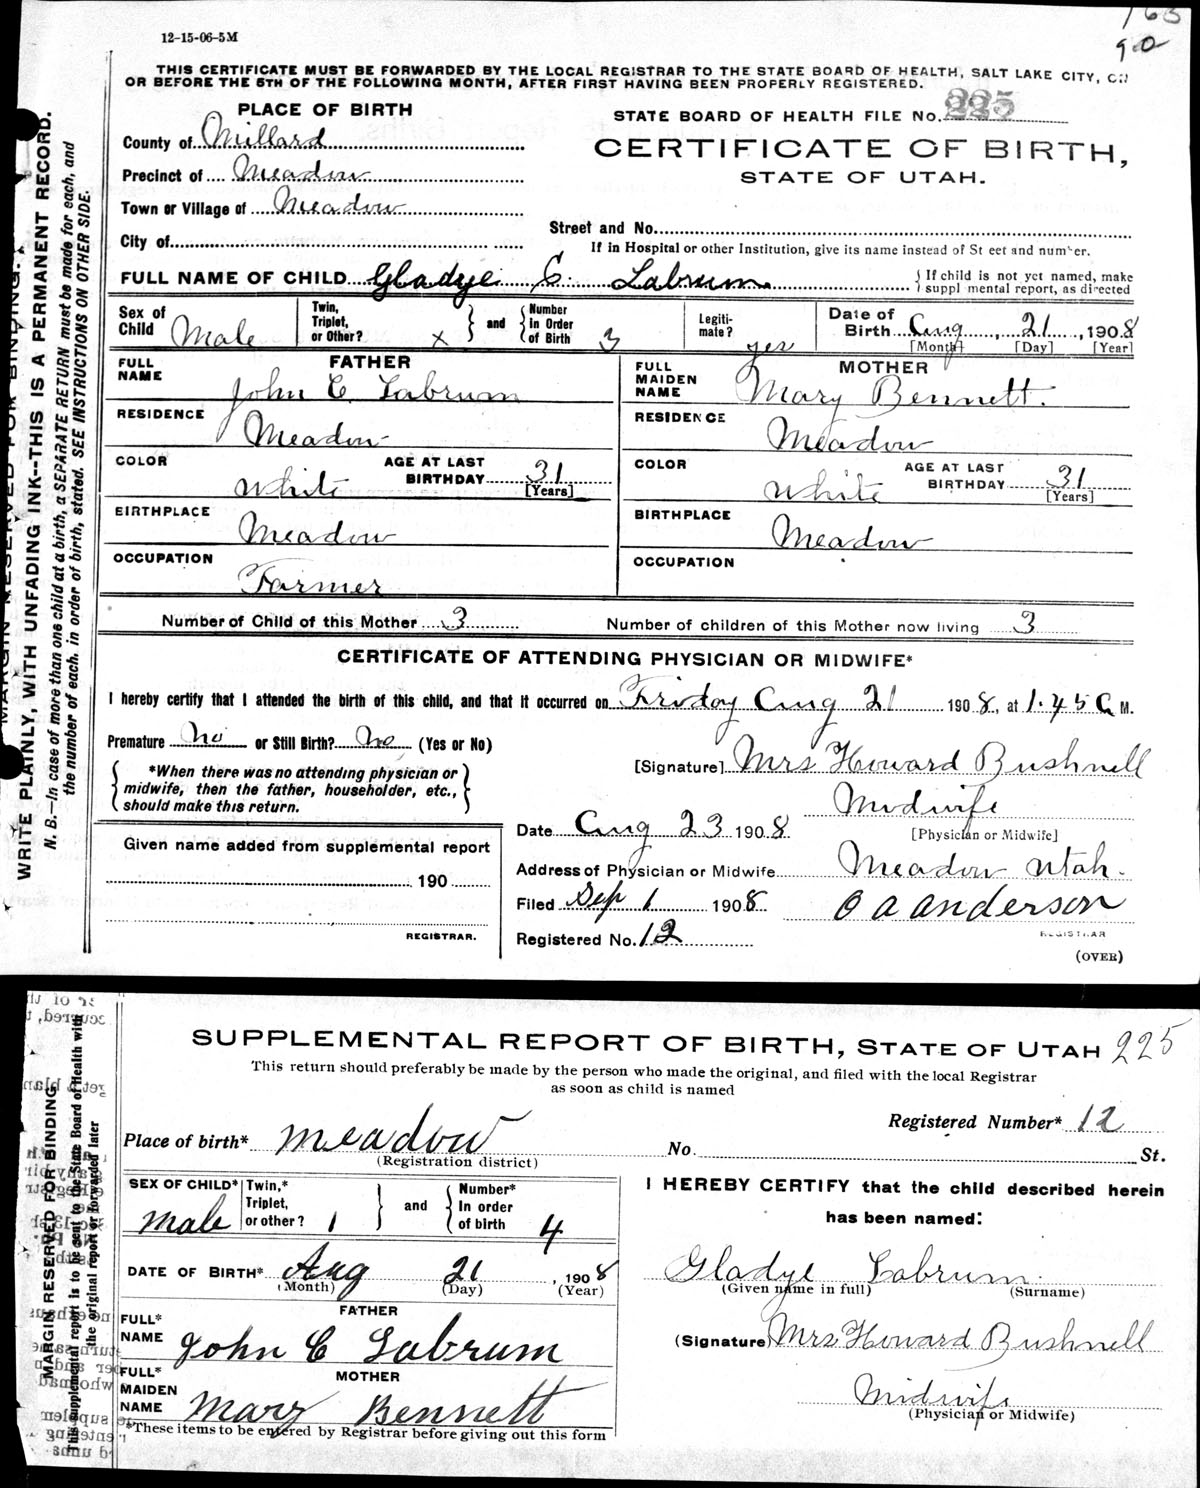 12-15-06-5M
90
THIS CERTIFICATE MUST BE FORWARDED BY THE LOCAL REGISTRAR TO THE STATE BOARD OF HEALTH, SALT LAKE CITY, ON
OR BEFORE THE 5TH OF THE FOLLOWING MONTH, AFTER FIRST HAVING BEEN PROPERLY REGISTERED.
PLACE OF BIRTH
STATE BOARD OF HEALTH FILE No. 225
County of Millard
CERTIFICATE OF BIRTH,
Precinct of Meadow
STATE OF UTAH.
Town or Village of Meadow
Street and No.
City of
If in Hospital or other Institution, give its name instead of St eet and number.
FULL NAME OF CHILD Gladye C. Labrum
{ If child is not yet named, make
suppl mental report, as directed
Sex of Child Male
Twin, Triplet, or Other? x } and { Number in Order of Birth 3
Legiti-mate? yes
Date of Birth Aug 21, 1908
[Month] [Day] [Year]
FATHER
FULL NAME John C. Labrum
RESIDENCE Meadow
COLOR White AGE AT LAST BIRTHDAY 31 [Years]
BIRTHPLACE Meadow
OCCUPATION Farmer
MOTHER
FULL MAIDEN NAME Mary Bennett.
RESIDENCE Meadow
COLOR White AGE AT LAST BIRTHDAY 31 [Years]
BIRTHPLACE Meadow
OCCUPATION
Number of Child of this Mother 3 Number of children of this Mother now living 3
CERTIFICATE OF ATTENDING PHYSICIAN OR MIDWIFE*
I hereby certify that I attended the birth of this child, and that it occurred on Friday Aug 21 1908, at 1.45 A M.
Premature No or Still Birth? No (Yes or No)
{ *When there was no attending physician or
midwife, then the father, householder, etc.,
should make this return. }
[Signature] Mrs Howard Bushnell
Midwife
[Physician or Midwife]
Date Aug 23 1908
Given name added from supplemental report
190
REGISTRAR.
Address of Physician or Midwife Meadow Utah.
Filed Sep 1 1908 O A Anderson
REGISTRAR
Registered No. 12
(OVER)
MARGIN RESERVED FOR BINDING.
WRITE PLAINLY, WITH UNFADING INK--THIS IS A PERMANENT RECORD.
N. B.—In case of more than one child at a birth, a SEPARATE RETURN must be made for each, and
the number of each, in order of birth, stated. SEE INSTRUCTIONS ON OTHER SIDE.
SUPPLEMENTAL REPORT OF BIRTH, STATE OF UTAH 225
This return should preferably be made by the person who made the original, and filed with the local Registrar
as soon as child is named
Registered Number* 12
Place of birth* Meadow No. St.
(Registration district)
SEX OF CHILD* Male
Twin,* Triplet, or other? 1 } and { Number* In order of birth 4
DATE OF BIRTH* Aug 21, 1908
(Month) (Day) (Year)
FATHER
FULL* NAME John C Labrum
MOTHER
FULL* MAIDEN NAME Mary Bennett
*These items to be entered by Registrar before giving out this form
I HEREBY CERTIFY that the child described herein
has been named:
Gladye Labrum.
(Given name in full) (Surname)
(Signature) Mrs Howard Bushnell
Midwife
(Physician or Midwife)
MARGIN RESERVED FOR BINDING
This supplemental report is to be sent to the State Board of Health with
the original report or forwarded later